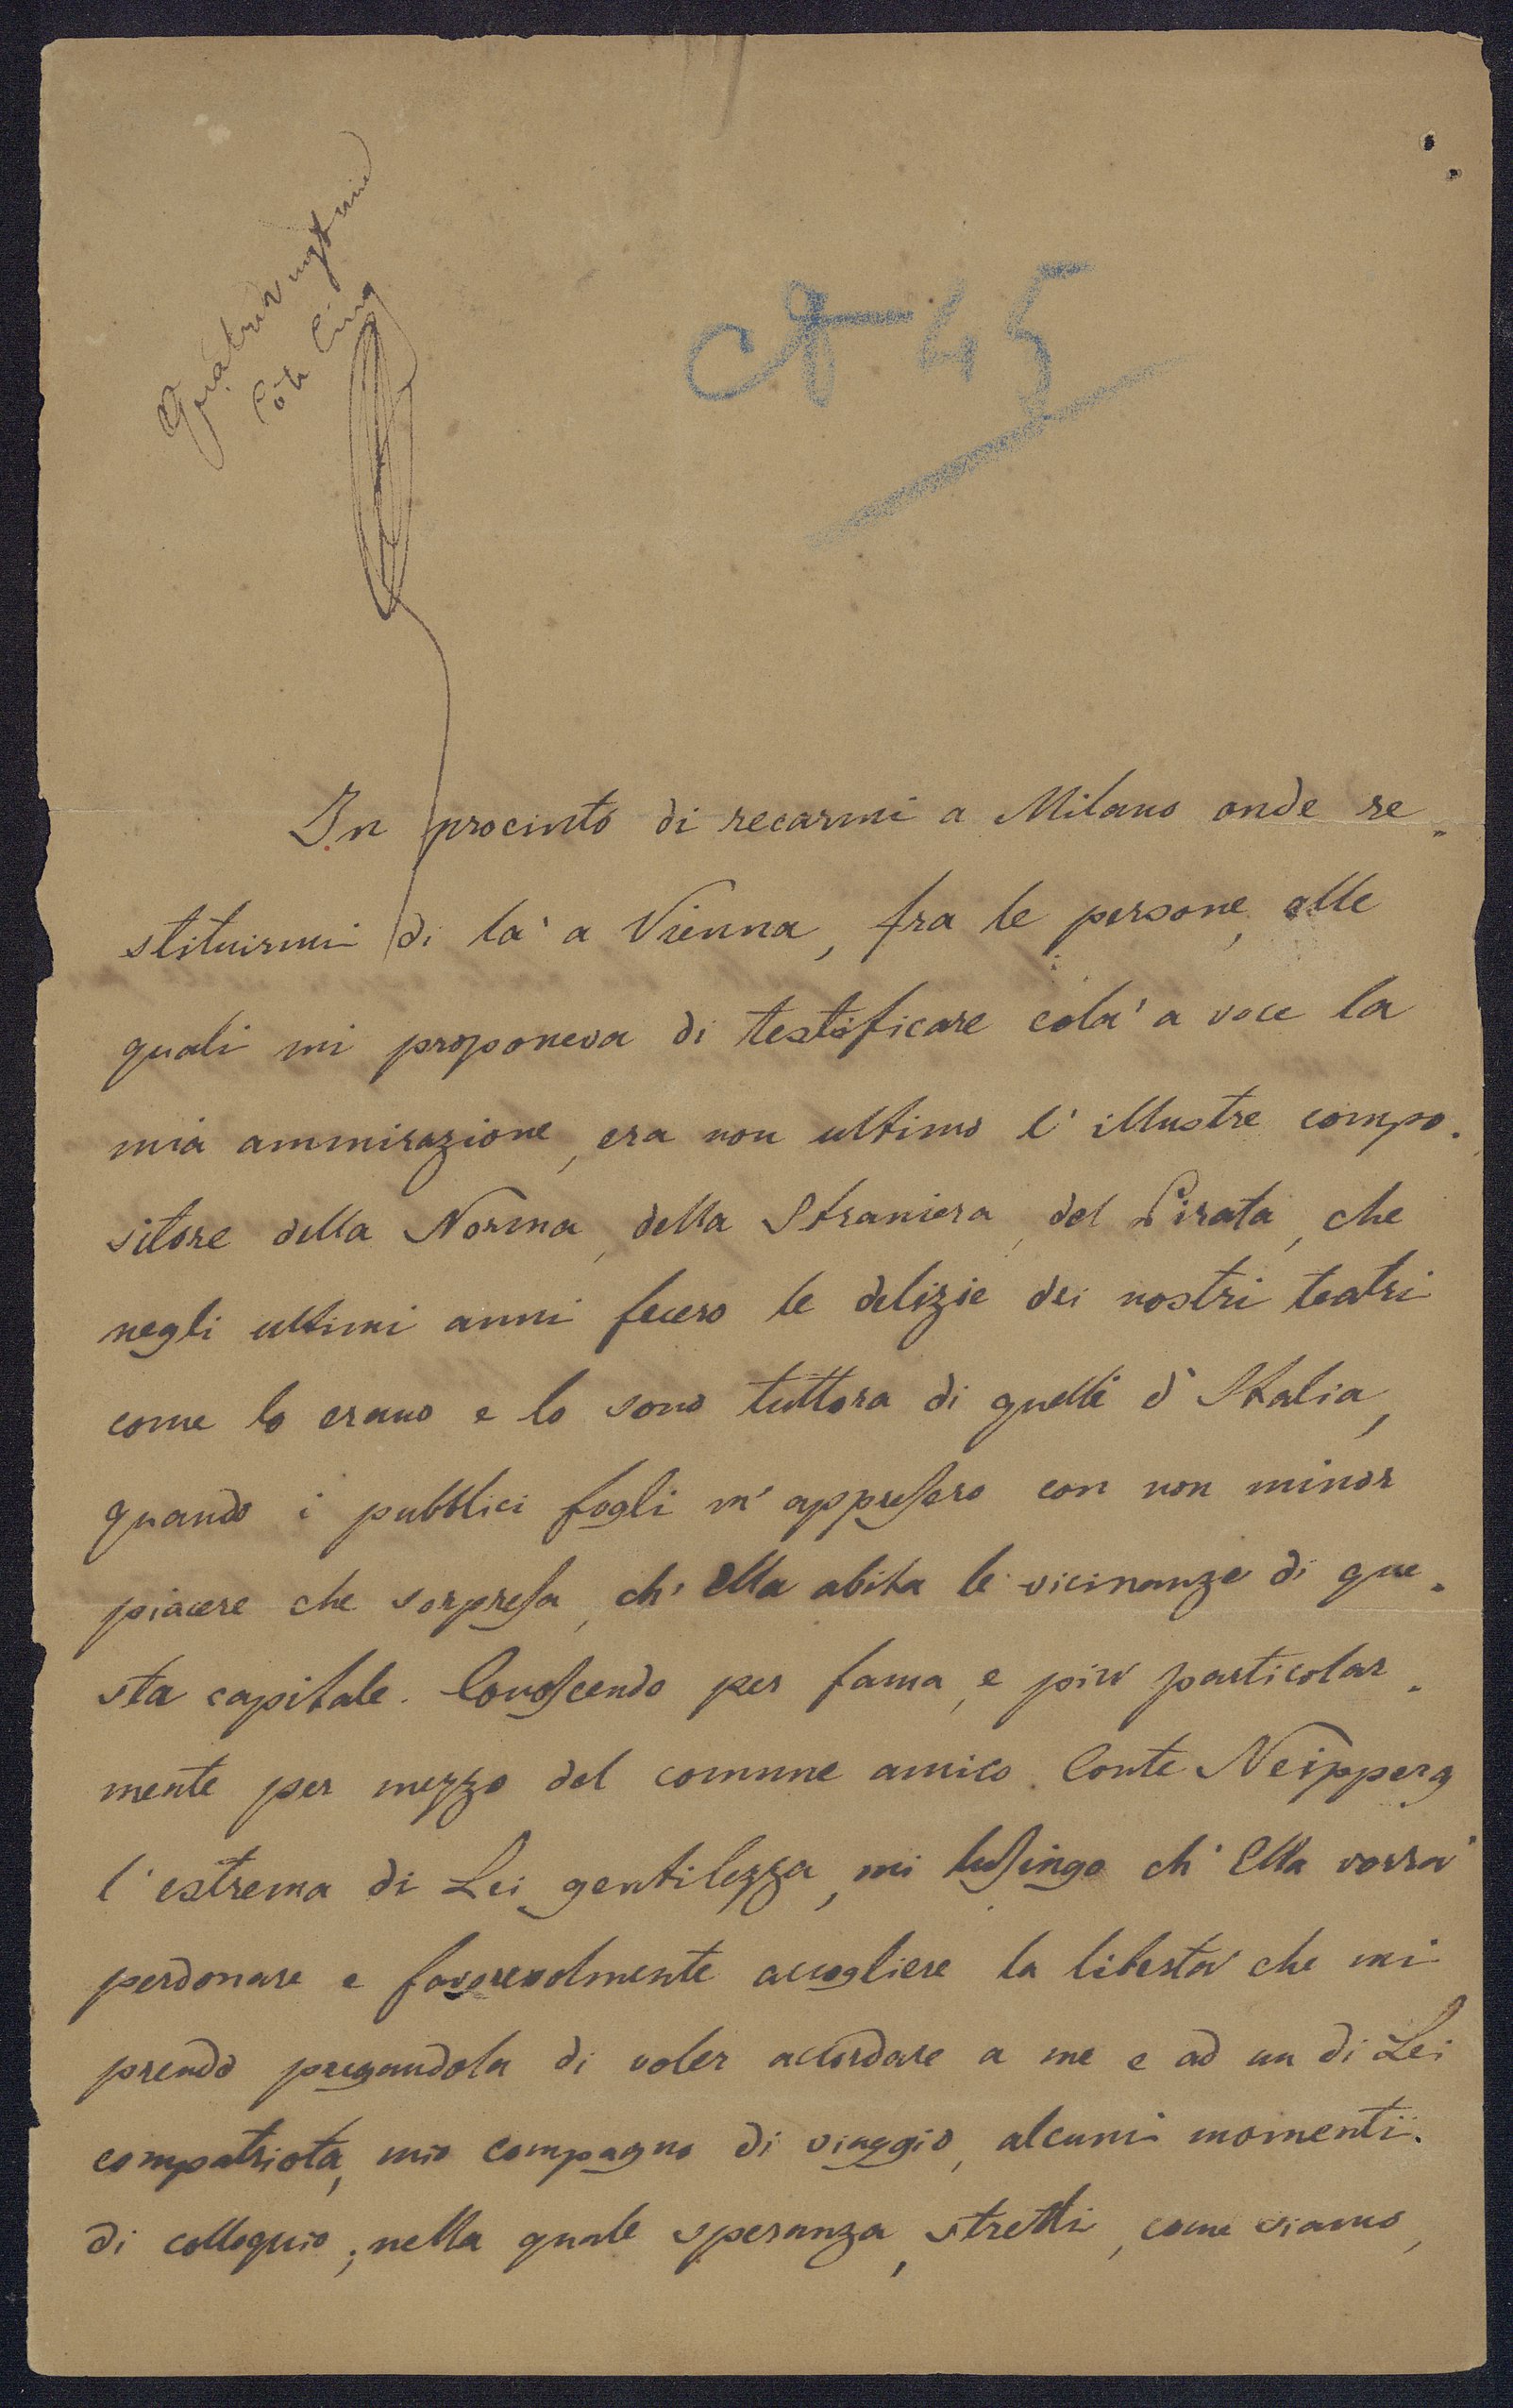 45
In procinto di recarmi a Milano onde re-
stituirmi di la' a Vienna, fra le persone, alle
quali mi proponeva di testificare cola' a voce la
mia ammirazione, era non ultimo l'illustre compo-
sitore della Norma, della Straniera, del Pirata, che
negli ultimi anni fecero le delizie dei nostri teatri
come lo erano e lo sono tuttora di quelli d'Italia,
quando i pubblici fogli m'appreſero con non minor
piacere che sorpreſa, ch'Ella abita le vicinanze di que-
sta capitale. Conoſcendo per fama, e piu' particolar-
mente per mezzo del comune amico Conte Neipperg
l'estrema di Lei gentilezza, mi luſingo ch'Ella vorra'
perdonare e favorevolmente accogliere la liberta' che mi
prendo pregandola di voler accordare a me e ad un di Lei
compatriota, mio compagno di viaggio, alcuni momenti
di colloquio; nella quale speranza, stretti, come siamo,